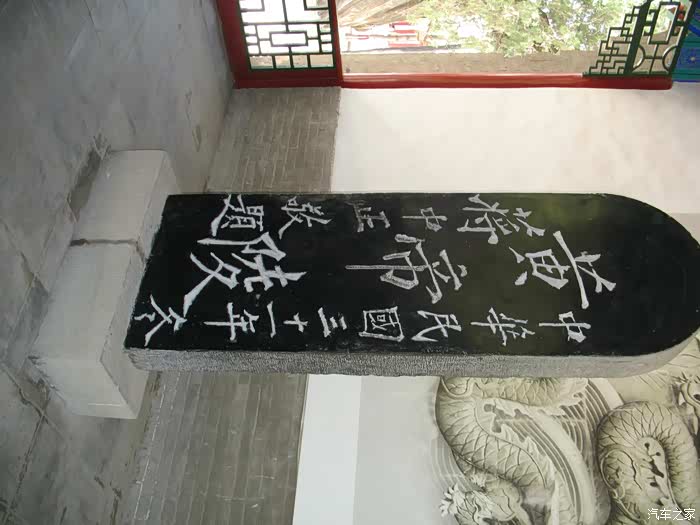 中華民國三十一年冬
黃帝陵
蔣中正敬題
汽车之家